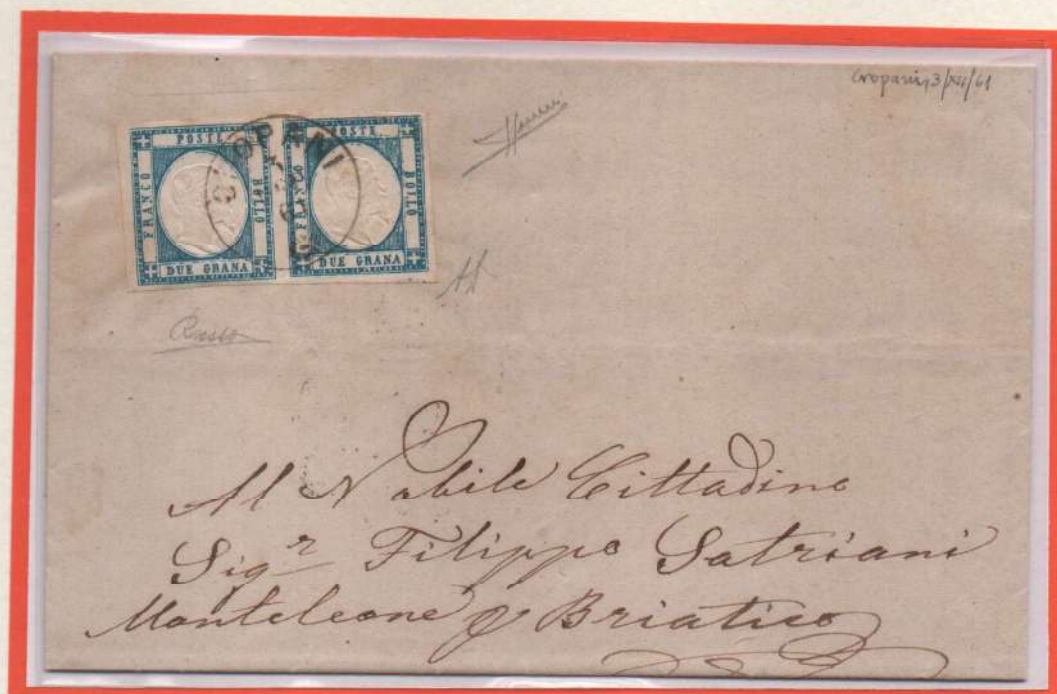 Cropani, 3/XII/61
POSTE
FRANCO
BOLLO
DUE GRANA
POSTE
FRANCO
BOLLO
DUE GRANA
CROPANI
3
Russo
Al Nobile Cittadino
Sigr Filippo Satriani
Monteleone p Briatico